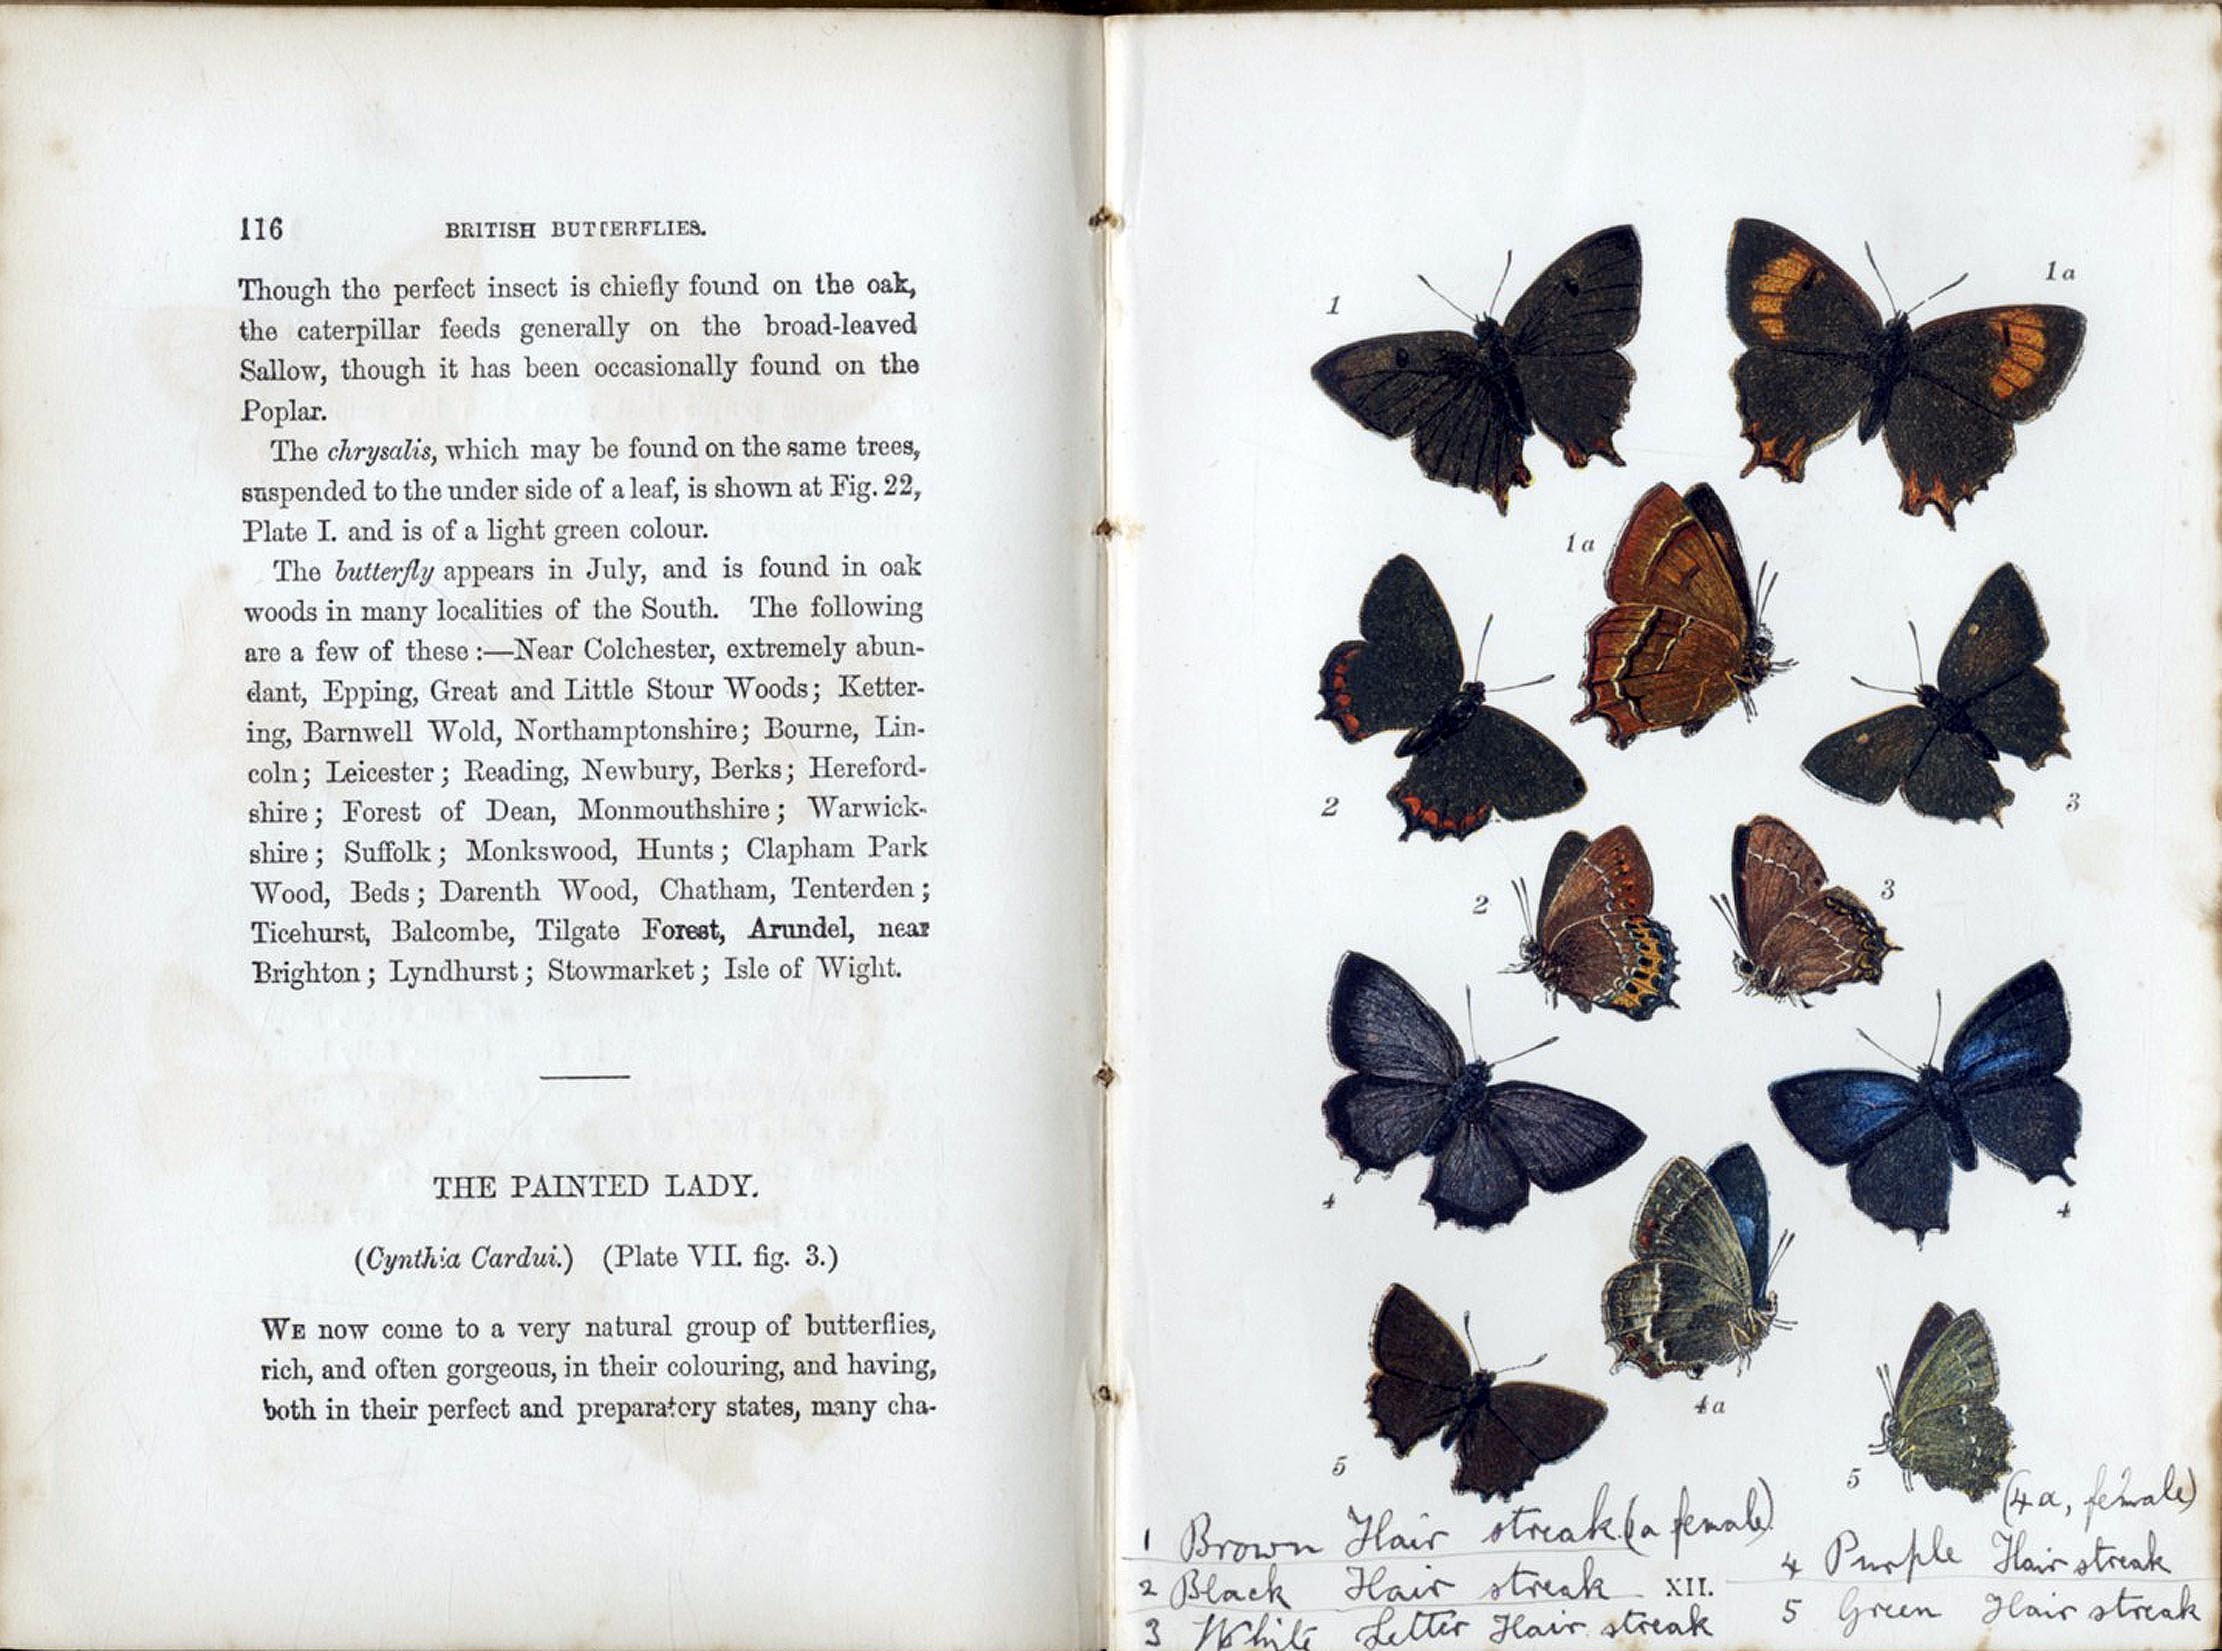 116 BRITISH BUTTERFLIES.
Though the perfect insect is chiefly found on the oak,
the caterpillar feeds generally on the broad-leaved
Sallow, though it has been occasionally found on the
Poplar.
The chrysalis, which may be found on the same trees,
suspended to the under side of a leaf, is shown at Fig. 22,
Plate I. and is of a light green colour.
The butterfly appears in July, and is found in oak
woods in many localities of the South. The following
are a few of these :—Near Colchester, extremely abun-
dant, Epping, Great and Little Stour Woods; Ketter-
ing, Barnwell Wold, Northamptonshire; Bourne, Lin-
coln; Leicester; Reading, Newbury, Berks; Hereford-
shire; Forest of Dean, Monmouthshire; Warwick-
shire; Suffolk; Monkswood, Hunts; Clapham Park
Wood, Beds; Darenth Wood, Chatham, Tenterden;
Ticehurst, Balcombe, Tilgate Forest, Arundel, near
Brighton; Lyndhurst; Stowmarket; Isle of Wight.
THE PAINTED LADY.
(Cynthia Cardui.) (Plate VII. fig. 3.)
WE now come to a very natural group of butterflies,
rich, and often gorgeous, in their colouring, and having,
both in their perfect and preparatory states, many cha-
1
1a
1a
2
3
2
3
4
4
4a
5
5
1 Brown Hair streak (a female)
2 Black Hair streak
3 White Letter Hair streak
XII.
(4a, female)
4 Purple Hair streak
5 Green Hair streak